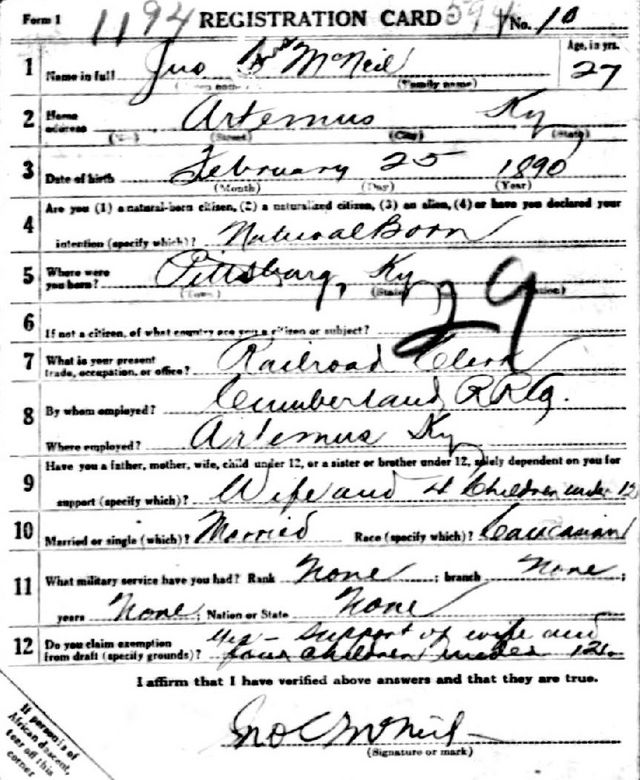 Form 1 1194 REGISTRATION CARD 594 No. 10
1 Name in full Jno McNeil Age, in yrs. 27
(Family name)
2 Home address Artemus Ky
(No.) (Street) (City) (State)
3 Date of birth February 25 1890
(Month) (Day) (Year)
4 Are you (1) a natural-born citizen, (2) a naturalized citizen, (3) an alien, (4) or have you declared your
intention (specify which)? Natural Born
5 Where were you born? Pittsburg, Ky
(Town) (State) (Nation)
29
6 If not a citizen, of what country are you a citizen or subject?
7 What is your present trade, occupation, or office? Railroad Clerk
8 By whom employed? Cumberland RR Co.
Where employed? Artemus Ky
9 Have you a father, mother, wife, child under 12, or a sister or brother under 12, solely dependent on you for
support (specify which)? Wife and 4 Children under 12
10 Married or single (which)? Married Race (specify which)? Caucasian
11 What military service have you had? Rank None ; branch None ;
years None ; Nation or State None
12 Do you claim exemption from draft (specify grounds)? Yes - Support of wife and
four children under 12.
I affirm that I have verified above answers and that they are true.
Jno C McNeil
(Signature or mark)
If person is of
African descent,
tear off this
corner